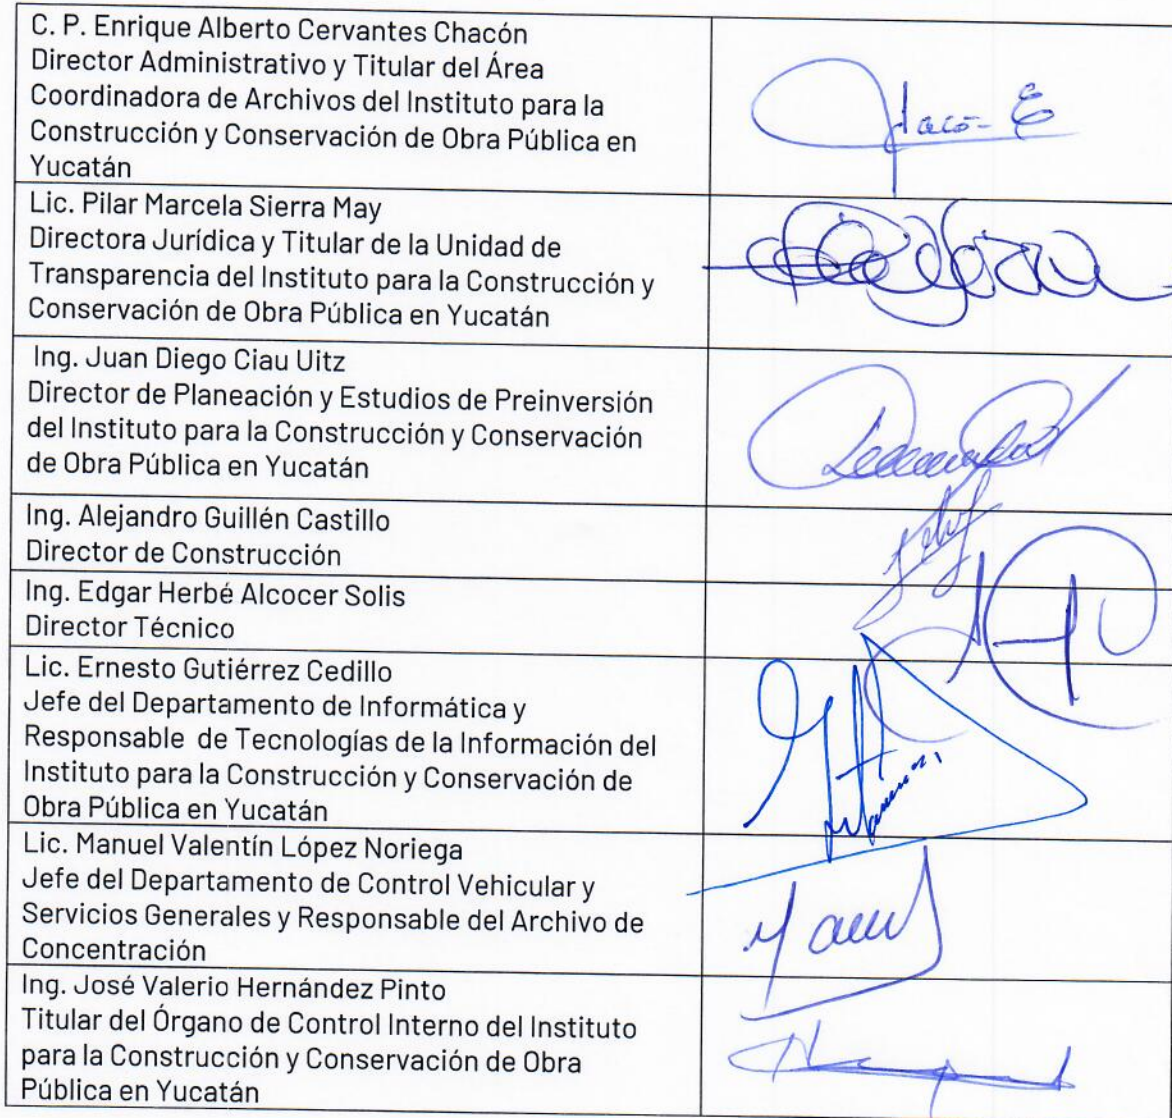 C. P. Enrique Alberto Cervantes Chacón
Director Administrativo y Titular del Área
Coordinadora de Archivos del Instituto para la
Construcción y Conservación de Obra Pública en
Yucatán
Lic. Pilar Marcela Sierra May
Directora Jurídica y Titular de la Unidad de
Transparencia del Instituto para la Construcción y
Conservación de Obra Pública en Yucatán
Ing. Juan Diego Ciau Uitz
Director de Planeación y Estudios de Preinversión
del Instituto para la Construcción y Conservación
de Obra Pública en Yucatán
Ing. Alejandro Guillén Castillo
Director de Construcción
Ing. Edgar Herbé Alcocer Solis
Director Técnico
Lic. Ernesto Gutiérrez Cedillo
Jefe del Departamento de Informática y
Responsable de Tecnologías de la Información del
Instituto para la Construcción y Conservación de
Obra Pública en Yucatán
Lic. Manuel Valentín López Noriega
Jefe del Departamento de Control Vehicular y
Servicios Generales y Responsable del Archivo de
Concentración
Ing. José Valerio Hernández Pinto
Titular del Órgano de Control Interno del Instituto
para la Construcción y Conservación de Obra
Pública en Yucatán